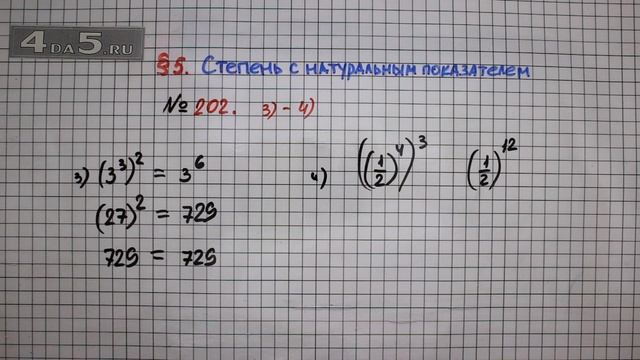 4DA5.RU
§5. Степень с натуральным показателем
№ 202. 3) - 4)
3) (3³)² = 3⁶
(27)² = 729
729 = 729
4) ((1/2)⁴)³ (1/2)¹²